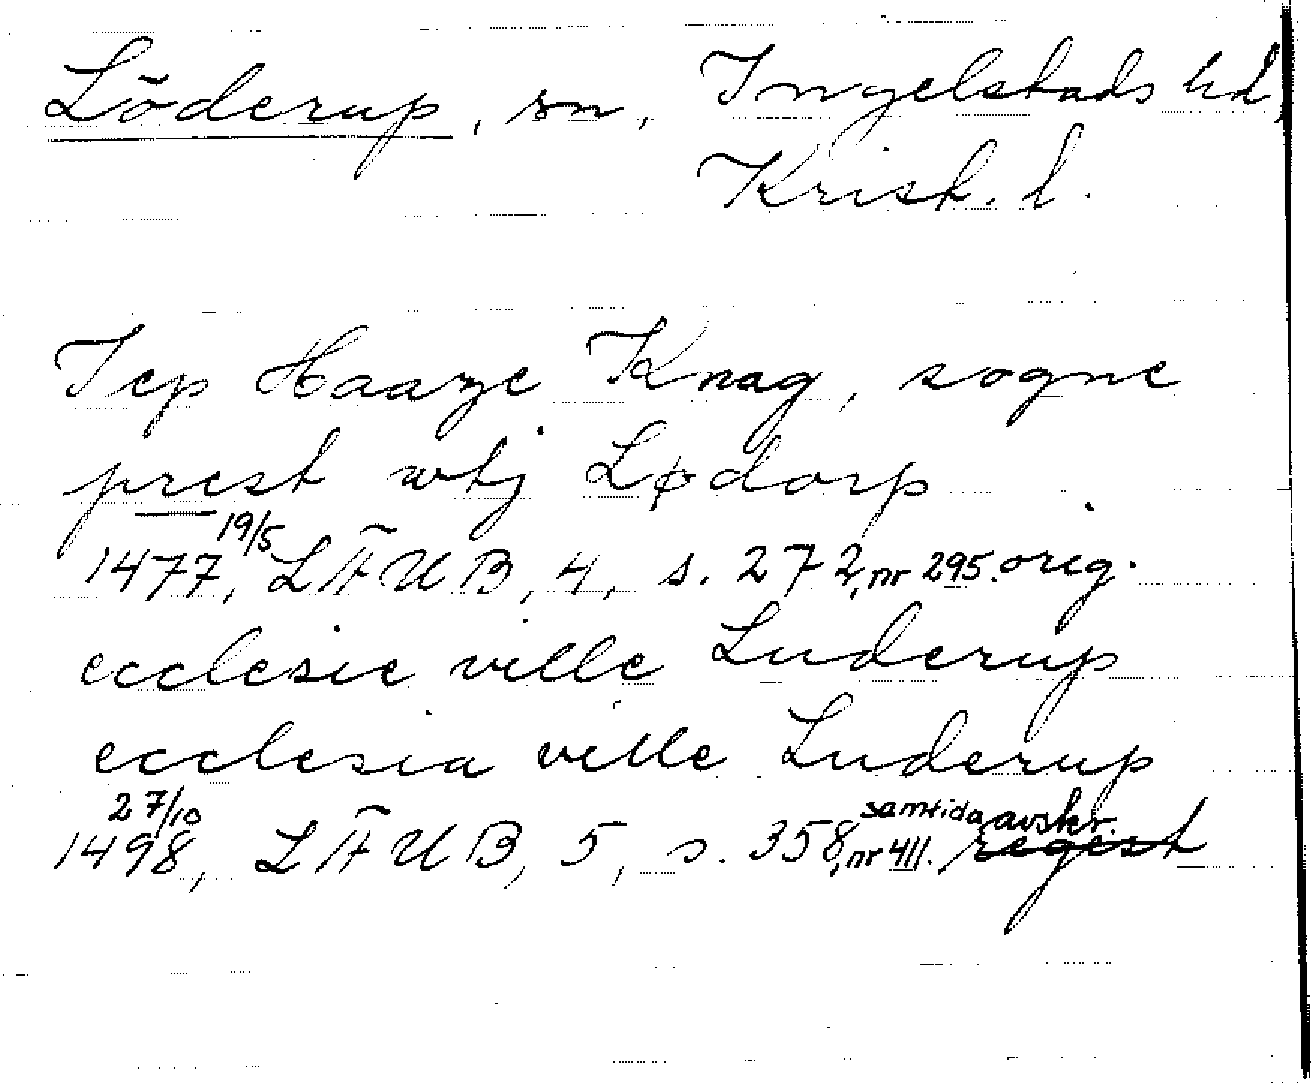 Löderup, sn, Ingelstads hd,
Krist. l.
Jep Haaze Knag, sogne
prest wtj Lødorp
1477 19/5, LÄUB, 4, s. 272, nr 295. orig.
ecclesie ville Luderup
ecclesia ville Luderup
27/10 samtida avskr.
1498, LÄUB, 5, s. 358, nr 411. regest